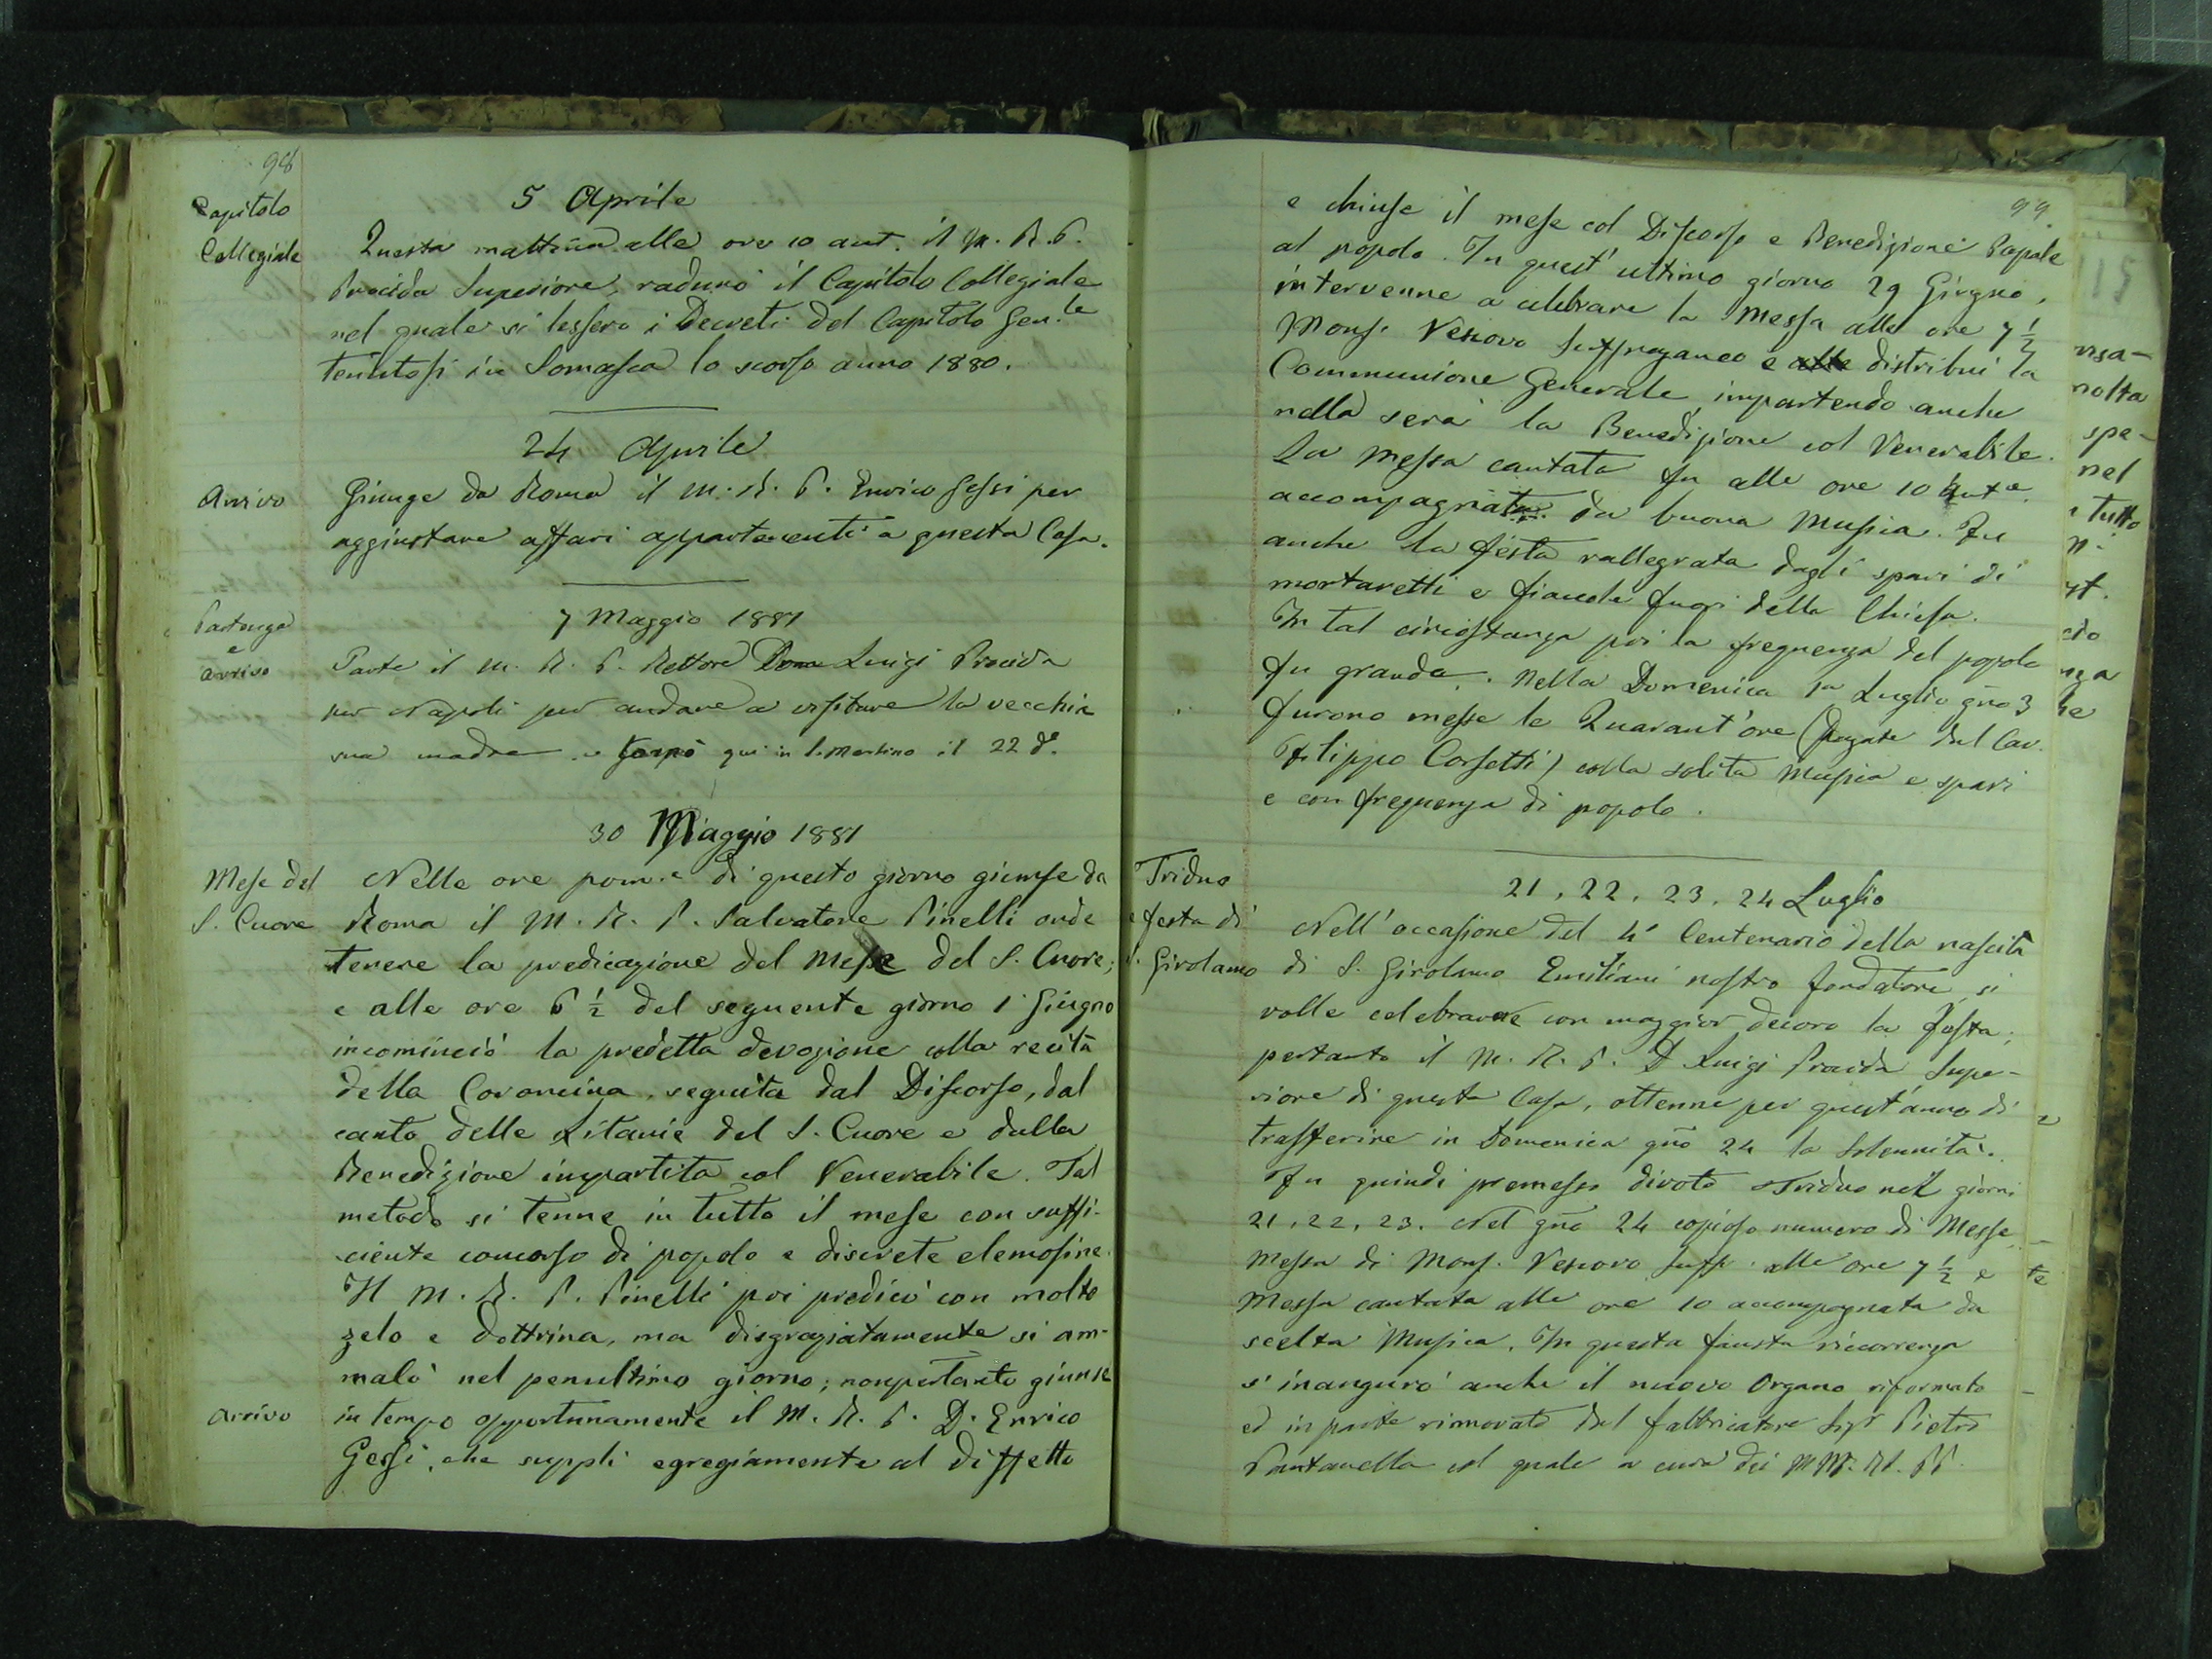 98
Capitolo
Collegiale
5 Aprile
Questa mattina alle ore 10 ant. il M. R. P.
Procida Superiore, radunò il Capitolo Collegiale
nel quale si lessero i Decreti del Capitolo Gen.le
tenutosi in Somasca lo scorso anno 1880.
24 Aprile
Arrivo
Giunge da Roma il M. R. P. Enrico Gessi per
aggiustare affari appartenenti a questa Casa.
Partenza
e
arrivo
7 Maggio 1881
Parte il M. R. P. Rettore Luigi Procida
per Napoli per andare a visitare la vecchia
sua madre e tornò qui in S. Martino il 22 do.
30 Maggio 1881
Mese del
S. Cuore
Nelle ore pom.e di questo giorno giunse da
Roma il M. R. P. Salvatore Pinelli onde
tenere la predicazione del Mese del S. Cuore;
e alle ore 6 ½ del seguente giorno 1 Giugno
incominciò la predetta devozione colla recita
della Coroncina, seguita dal Discorso, dal
canto delle Litanie del S. Cuore e dalla
Benedizione impartita col Venerabile. Tal
metodo si tenne in tutto il mese con suffi-
ciente concorso di popolo e discrete elemosine.
Il M. R. P. Pinelli poi predicò con molto
zelo e dottrina, ma disgraziatamente si am-
malò nel penultimo giorno; nonpertanto giunse
Arrivo
in tempo opportunamente il M. R. P. D. Enrico
Gessi, che supplì egregiamente al diffetto
99
e chiuse il mese col Discorso e Benedizione Papale
al popolo. In quest'ultimo giorno 29 Giugno,
intervenne a celebrare la Messa alle ore 7 ½
Mons. Vescovo Suffraganeo e distribuì la
Communione Generale, impartendo anche
nella sera la Benedizione col Venerabile.
La Messa cantata fu alle ore 10 ant.e
accompagnata da buona Musica. Fu
anche la festa rallegrata dagli spari di
mortaretti e fiaccole fuori della Chiesa.
In tal circostanza poi la frequenza del popolo
fu grande. Nella Domenica 1a Luglio gno 3
furono messe le Quarant'ore (pagate dal Cav.
Filippo Corsetti) colla solita Musica e spari
e con frequenza di popolo.
Triduo
e festa di
S. Girolamo
21, 22, 23, 24 Luglio
Nell'occasione del 4° Centenario della nascita
di S. Girolamo Emiliani nostro fondatore, si
volle celebrarne con maggior decoro la festa;
pertanto il M. R. P. D Luigi Procida Supe-
riore di questa Casa, ottenne per quest'anno di
trasferire in Domenica gno 24 la Solennità.
Fu quindi premesso divoto Triduo nei giorni
21, 22, 23. Nel gno 24 copioso numero di Messe,
Messa di Mons. Vescovo Suff. alle ore 7 ½ e
Messa cantata alle ore 10 accompagnata da
scelta Musica. In questa fausta ricorrenza
s'inaugurò anche il nuovo Organo riformato
ed in parte rinnovato dal fabbricatore Sigr Pietro
Pantanella col quale a cura dei MM. RR. PP.